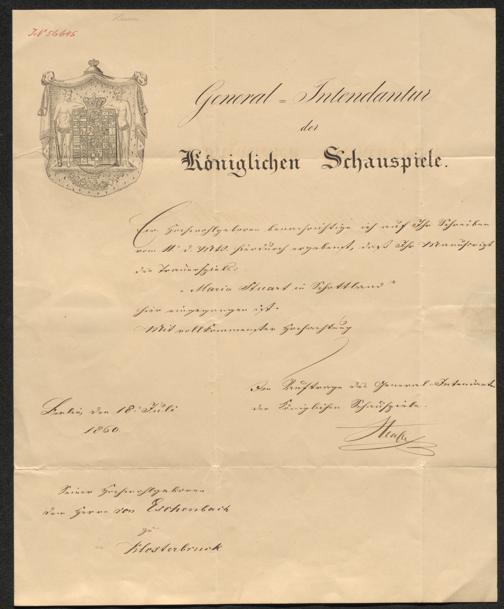 J.N. 56646
General-Intendantur
der
Königlichen Schauspiele.
Euer Hochwohlgeboren benachrichtige ich auf Ihr Schreiben
vom 11t d. Mts. hierdurch ergebenst, daß Ihr Manuscript
des Trauerspiels:
„Maria Stuart in Schottland"
hier eingegangen ist.
Mit vollkommenster Hochachtung
Im Auftrage des General-Intendanten
der Königlichen Schauspiele.
Berlin den 18. Juli
1860.
Seiner Hochwohlgeboren
dem Herrn von Eschenbach
zu
Klosterbruck